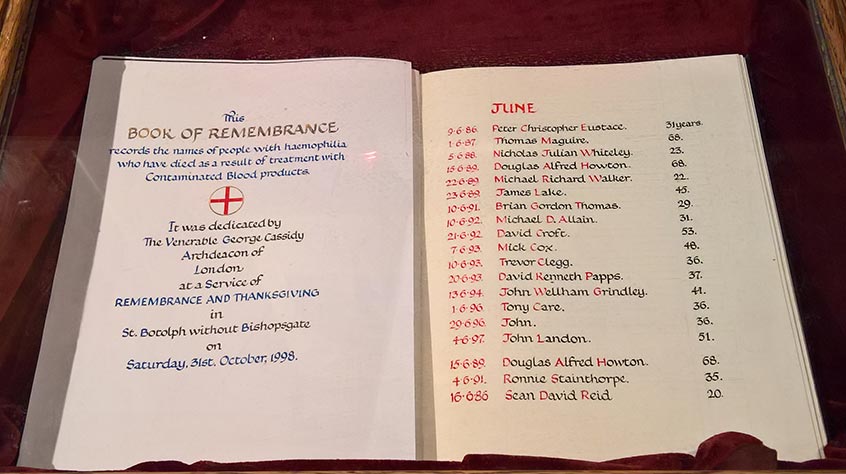 This
BOOK OF REMEMBRANCE
records the names of people with haemophilia
who have died as a result of treatment with
Contaminated Blood products.
It was dedicated by
The Venerable George Cassidy
Archdeacon of
London
at a Service of
REMEMBRANCE AND THANKSGIVING
in
St. Botolph without Bishopsgate
on
Saturday, 31st. October, 1998.
JUNE
9·6·86. Peter Christopher Eustace. 31years.
1·6·87. Thomas Maguire. 68.
5·6·88. Nicholas Julian Whiteley. 23.
15·6·89. Douglas Alfred Howton. 68.
22·6·89. Michael Richard Walker. 22.
23·6·89. James Lake. 45.
10·6·91. Brian Gordon Thomas. 29.
10·6·92. Michael D. Allain. 31.
21·6·92. David Croft. 53.
7·6·93. Mick Cox. 48.
10·6·93. Trevor Clegg. 36.
20·6·93. David Kenneth Papps. 37.
13·6·94. John Wellham Grindley. 41.
1·6·96. Tony Care. 36.
29·6·96. John. 36.
4·6·97. John Landon. 51.
15·6·89. Douglas Alfred Howton. 68.
4·6·91. Ronnie Stainthorpe. 35.
16·6·86 Sean David Reid 20.